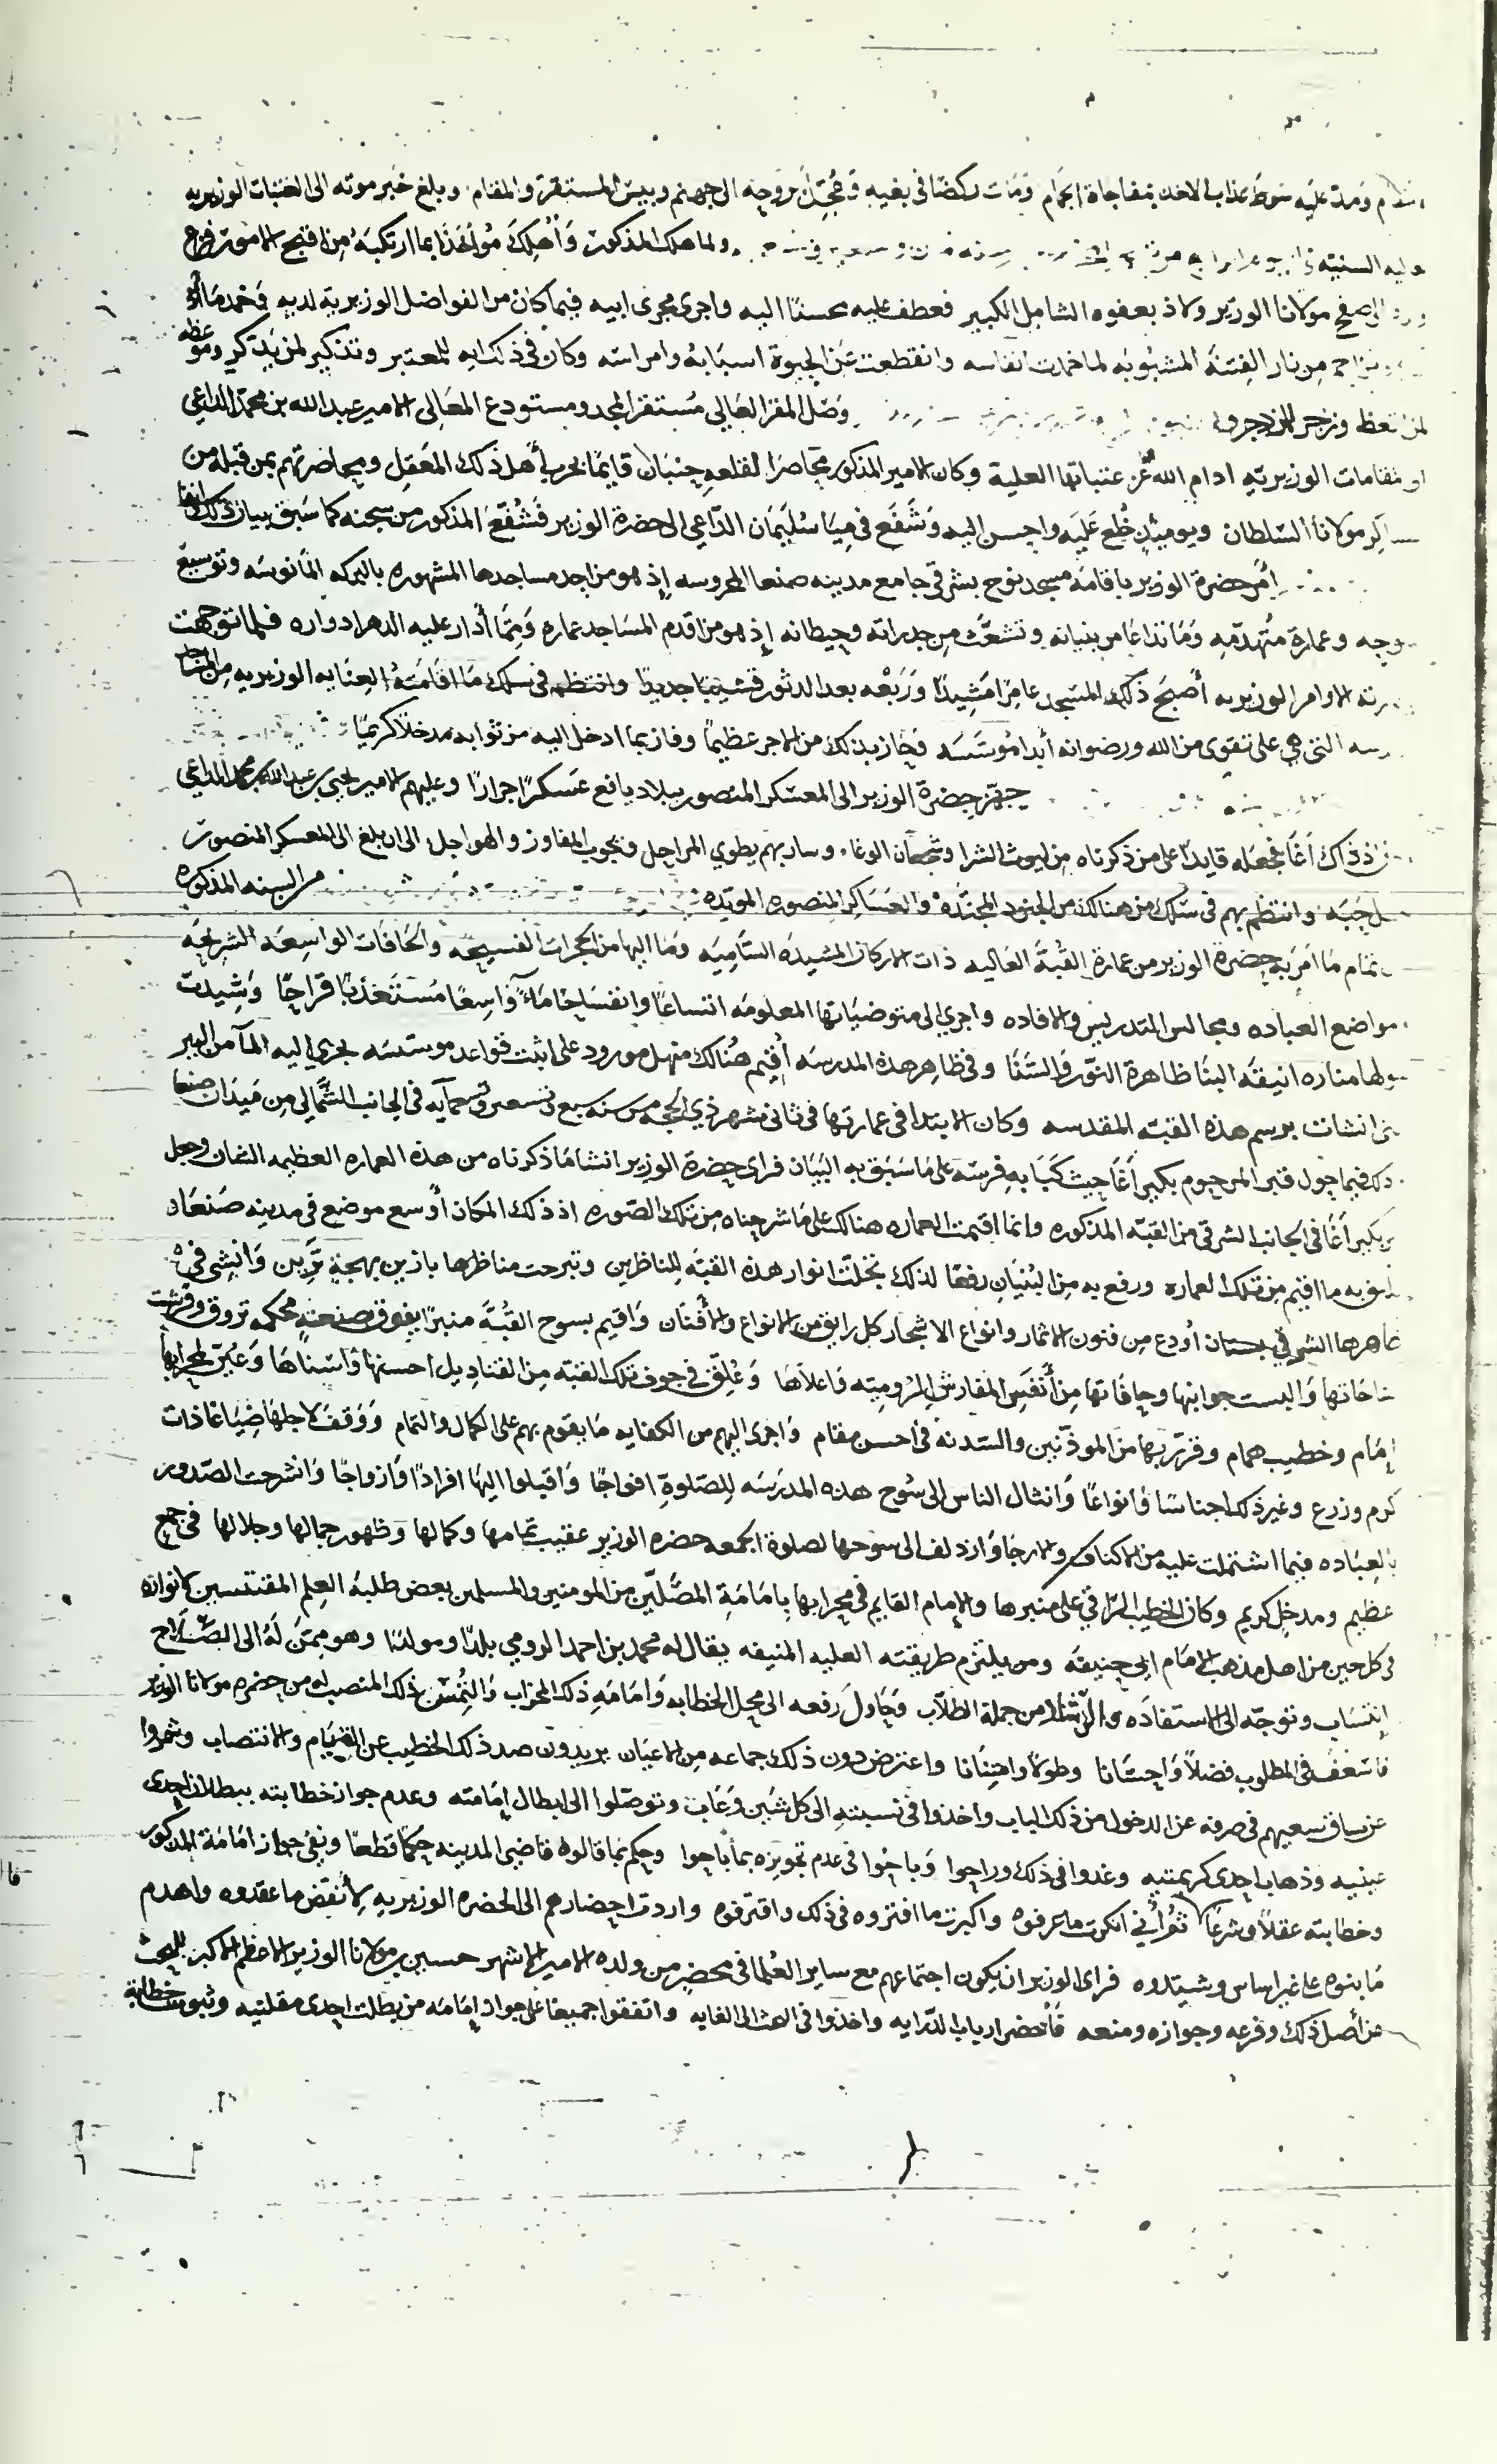 ومد عليه سوط عذاب الاخذ بمفاجاة الحمام ومات ركضا في بغيه وعجل بروحه الى جهنم وبيس المستقر والمقام وبلغ خبر موته الى العتبات الوزيريه
ولما هلك المذكور وأهلك مؤاخذا بما ارتكبه من اقبح الامور فزع
صفح مولانا الوزير ولاذ بعفوه الشامل الكبير فعطف عليه محسنا اليه واجرى مجرى ابيه فيما كان من الفواضل الوزيريه لديه فخمد ما
من نار الفتنة المشبوبه لما خمدت انفاسه وانقطعت عن الحيوة اسبابه وامراسه وكان في ذلك ايه للمعتبر وتذكير لمن يدكر وموعظه
لمن اتعظ وزجر وصل المقر العالي مستقر المجد ومستودع المعالي الامير عبد الله بن محمد الداعي
الوزيريه ادام الله عز عتباتها العلية وكان الامير المذكور محاصرا لقلعه قايما بحرب أهل ذلك المعقل ومحاصرتهم بمن قبله من
مولانا السلطان ويوميذ خلع عليه واحسن اليه وشفع في سليمان الداعي الى حضرة الوزير فشفع المذكور من سجنه كما سبق بيان ذلك انفا
أمر حضرة الوزير باقامة مسجد نوح بشرقي جامع مدينه صنعا المحروسه إذ هو من احد مساجدها المشهوره بالبركه المأنوسه وتوسيع
وعمارة متهدمه وما تداعا من بنيانه وتشعث من جدراته وحيطانه إذ هو من اقدم المساجد عماره ومما أدار عليه الدهر ادواره فلما توجهت
الاوامر الوزيريه أصبح ذلك المسجد عامرا مشيدا وربعه بعد الدثور قشيبا جديدا وانتظم في سلك ما اقامته العنايه الوزيريه من
التي هي على تقوى من الله ورضوانه أبدا موسسه فحاز بذلك من الاجر عظيما وفاز بما ادخل اليه من ثوابه مدخلا كريما
جهز حضرة الوزير الى المعسكر المنصور ببلاد يافع عسكرا جرارا وعليهم الامير يحيى بن عبد الله بن محمد الداعي
اذ ذاك أغا فجعله قايدا على من ذكرناه من ليوث الشرا وشجعان الوغاء وسار بهم يطوي المراحل ويجوب المفاوز والهواجل الى ان بلغ الى المعسكر المنصور
وانتظم بهم في سلك من هنالك من الجنود المجنده والعساكر المنصوره المويده من السنه المذكوره
تمام ما امر به حضرة الوزير من عمارة القبة العاليه ذات الاركان المشيده الساميه وما اليها من الحجرات الفسيحه والحافات الواسعه الشريحه
مواضع العباده ومجالس التدريس والافاده واجري الى متوضياتها المعلومه اتساعا وانفساحا ماء واسعا مستعذبا قراحا وشيدت
مناره انيقه البنا ظاهرة النور والسنا وفي ظاهر هذه المدرسه أقيم هنالك منهل مورود على اثبت قواعد موسسه يجري اليه الماء من البير
انشات برسم هذه القبه المقدسه وكان الابتدا في عمارتها في ثاني شهر ذي الحجه من سنه سبع وتسعين وتسعمايه في الجانب الشمالي من ميدان صنعا
فيما حول قبر المرحوم بكير أغا حيث كبا به فرسه على ما سبق به البيان فراى حضرة الوزير انشا ما ذكرناه من هذه العماره العظيمه الشان وجعل
بكير أغا في الجانب الشرقي من القبه المذكوره وانما اقيمت العماره هنالك على ما شرحناه من تلك الصوره اذ ذلك المكان أوسع موضع في مدينه صنعا
به ما اقيم من تلك العماره ورفع به من البنيان رفعا لذلك تجلت انوار هذه القبه للناظرين وتبرجت مناظرها بازين بهجة تزين وانشي في
ظاهرها الشرقي بستان أودع من فنون الاثمار وانواع الاشجار كل رايق من الانواع والأفنان واقيم بسوح القبة منبرا يفوق صنعة محكمه تروق وفرشت
والبست جوانبها وحافاتها من أنفس المفارش الروميه واعلاها وعلق في جوف تلك القبه من القناديل احسنها واسناها وعين لمحرابها
إمام وخطيب همام وقرر بها من الموذنين والسدنه في احسن مقام واجرى اليهم من الكفايه ما يقوم بهم على الكمال والتمام ووقف لاجلها ضياعا ذات
كرم وزرع وغير ذلك اجناسا وانواعا وانثال الناس الى سوح هذه المدرسه للصلوة افواجا واقبلوا اليها افرادا وازواجا وانشرحت الصدور
بالعباده فيما اشتملت عليه من الاكناف والارجا وازدلف الى سوحها لصلوة الجمعه حضره الوزير عقيب تمامها وكمالها وظهور جمالها وجلالها في جمع
عظيم ومدخل كريم وكان الخطيب الراقي على منبرها والامام القايم في محرابها بامامة المصلين من المومنين والمسلمين بعض طلبة العلم المقتبسين لانواره
في كل حين من اهل مذهب الامام ابي حنيفه ومن يلتزم طريقته العليه المنيفه يقال له محمد بن احمد الرومي بلدا ومولدا وهو ممن له الى الصلاح
إنتساب وتوجه الى الاستفاده والارشاد من جملة الطلاب فحاول رفعه الى محل الخطابه وامامه ذلك المحراب والتمس ذلك المنصب له من حضره مولانا الوزير
فاسعف في المطلوب فضلا واحسانا وطولا وامتنانا واعترض دون ذلك جماعه من الاعيان يريدون صد ذلك الخطيب عن القيام والانتصاب وشمروا
عن ساق سعيهم في صرفه عن الدخول من ذلك الباب واخذوا في نسبته الى كل شين وعاب وتوصلوا الى ابطال إمامته وعدم جواز خطابته ببطلان احدى
عينيه وذهاب احدى كريمتيه وغدوا في ذلك وراحوا وباحوا في عدم تجويزه بما باحوا وحكم بما قالوه قاضي المدينه حكما قطعا ونفى جواز امامة المذكور
وخطابته عقلا وشرعا ثم أني انكرت ما عرفوه واكبرت ما افتروه في ذلك واقترفوه واردت احضارهم الى الحضره الوزيريه لأنقض ما عقدوه واهدم
ما بنوه على غير اساس وشيدوه فراى الوزير ان يكون اجتماعهم مع ساير العلما في محضر من ولده الامير الاشهر حسين بن مولانا الوزير الاعظم الاكبر للبحث
عن أصل ذلك وفرعه وجوازه ومنعه فأحضر ارباب الدرايه واخذوا في البحث الى الغايه واتفقوا جميعا على جواز إمامه من بطلت احدى مقلتيه وثبوت خطابته